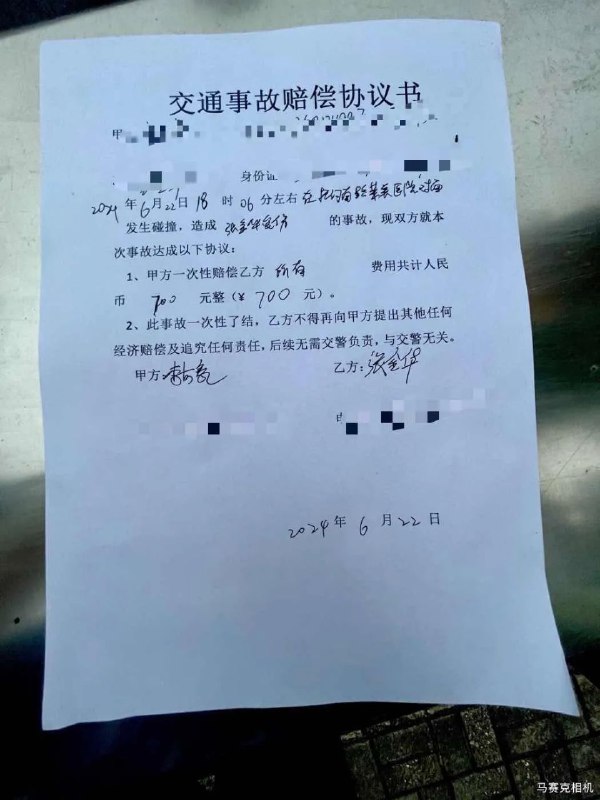 交通事故赔偿协议书
甲
身份证
2024年6月22日18时06分左右在
医院对面
发生碰撞，造成 张金华受伤 的事故，现双方就本
次事故达成以下协议：
1、甲方一次性赔偿乙方 所有 费用共计人民
币 700 元整（¥ 700 元）。
2、此事故一次性了结，乙方不得再向甲方提出其他任何
经济赔偿及追究任何责任，后续无需交警负责，与交警无关。
甲方： 乙方：张金华
2024年6月22日
马赛克相机